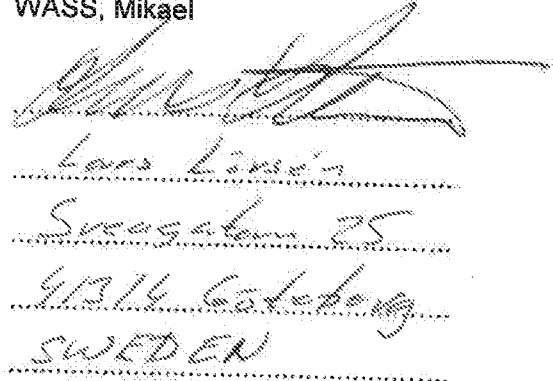 WASS, Mikael
Lars Linsén
Sveagatan 25
41314 Göteborg
SWEDEN